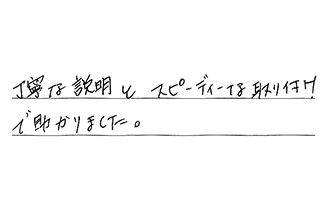 丁寧な説明とスピーディーな取り付け
で助かりました。